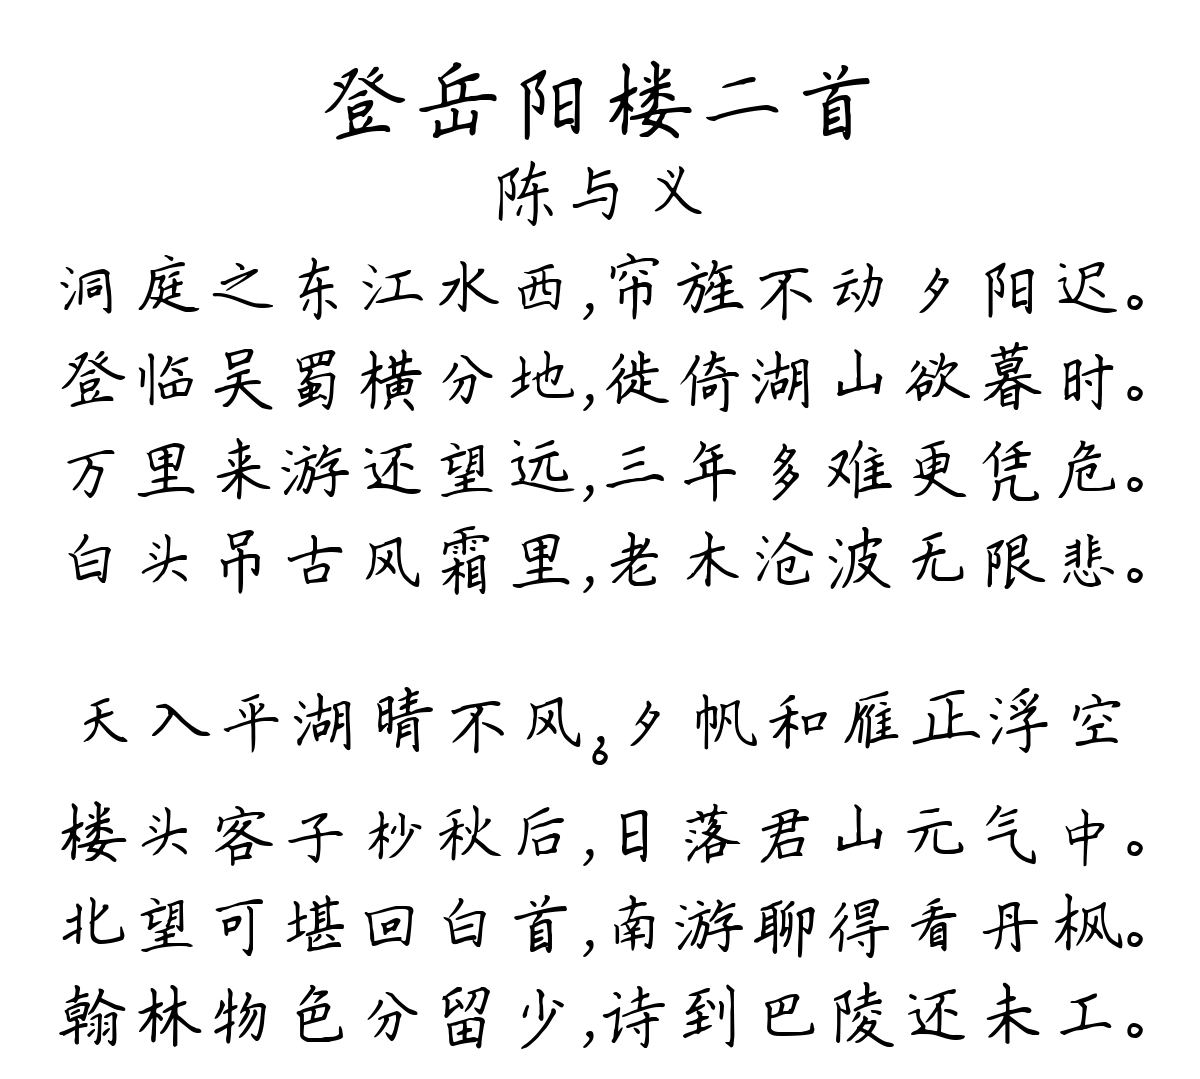 登岳阳楼二首
陈与义
洞庭之东江水西,帘旌不动夕阳迟。
登临吴蜀横分地,徙倚湖山欲暮时。
万里来游还望远,三年多难更凭危。
白头吊古风霜里,老木沧波无限悲。
天入平湖晴不风,夕帆和雁正浮空。
楼头客子杪秋后,日落君山元气中。
北望可堪回白首,南游聊得看丹枫。
翰林物色分留少,诗到巴陵还未工。